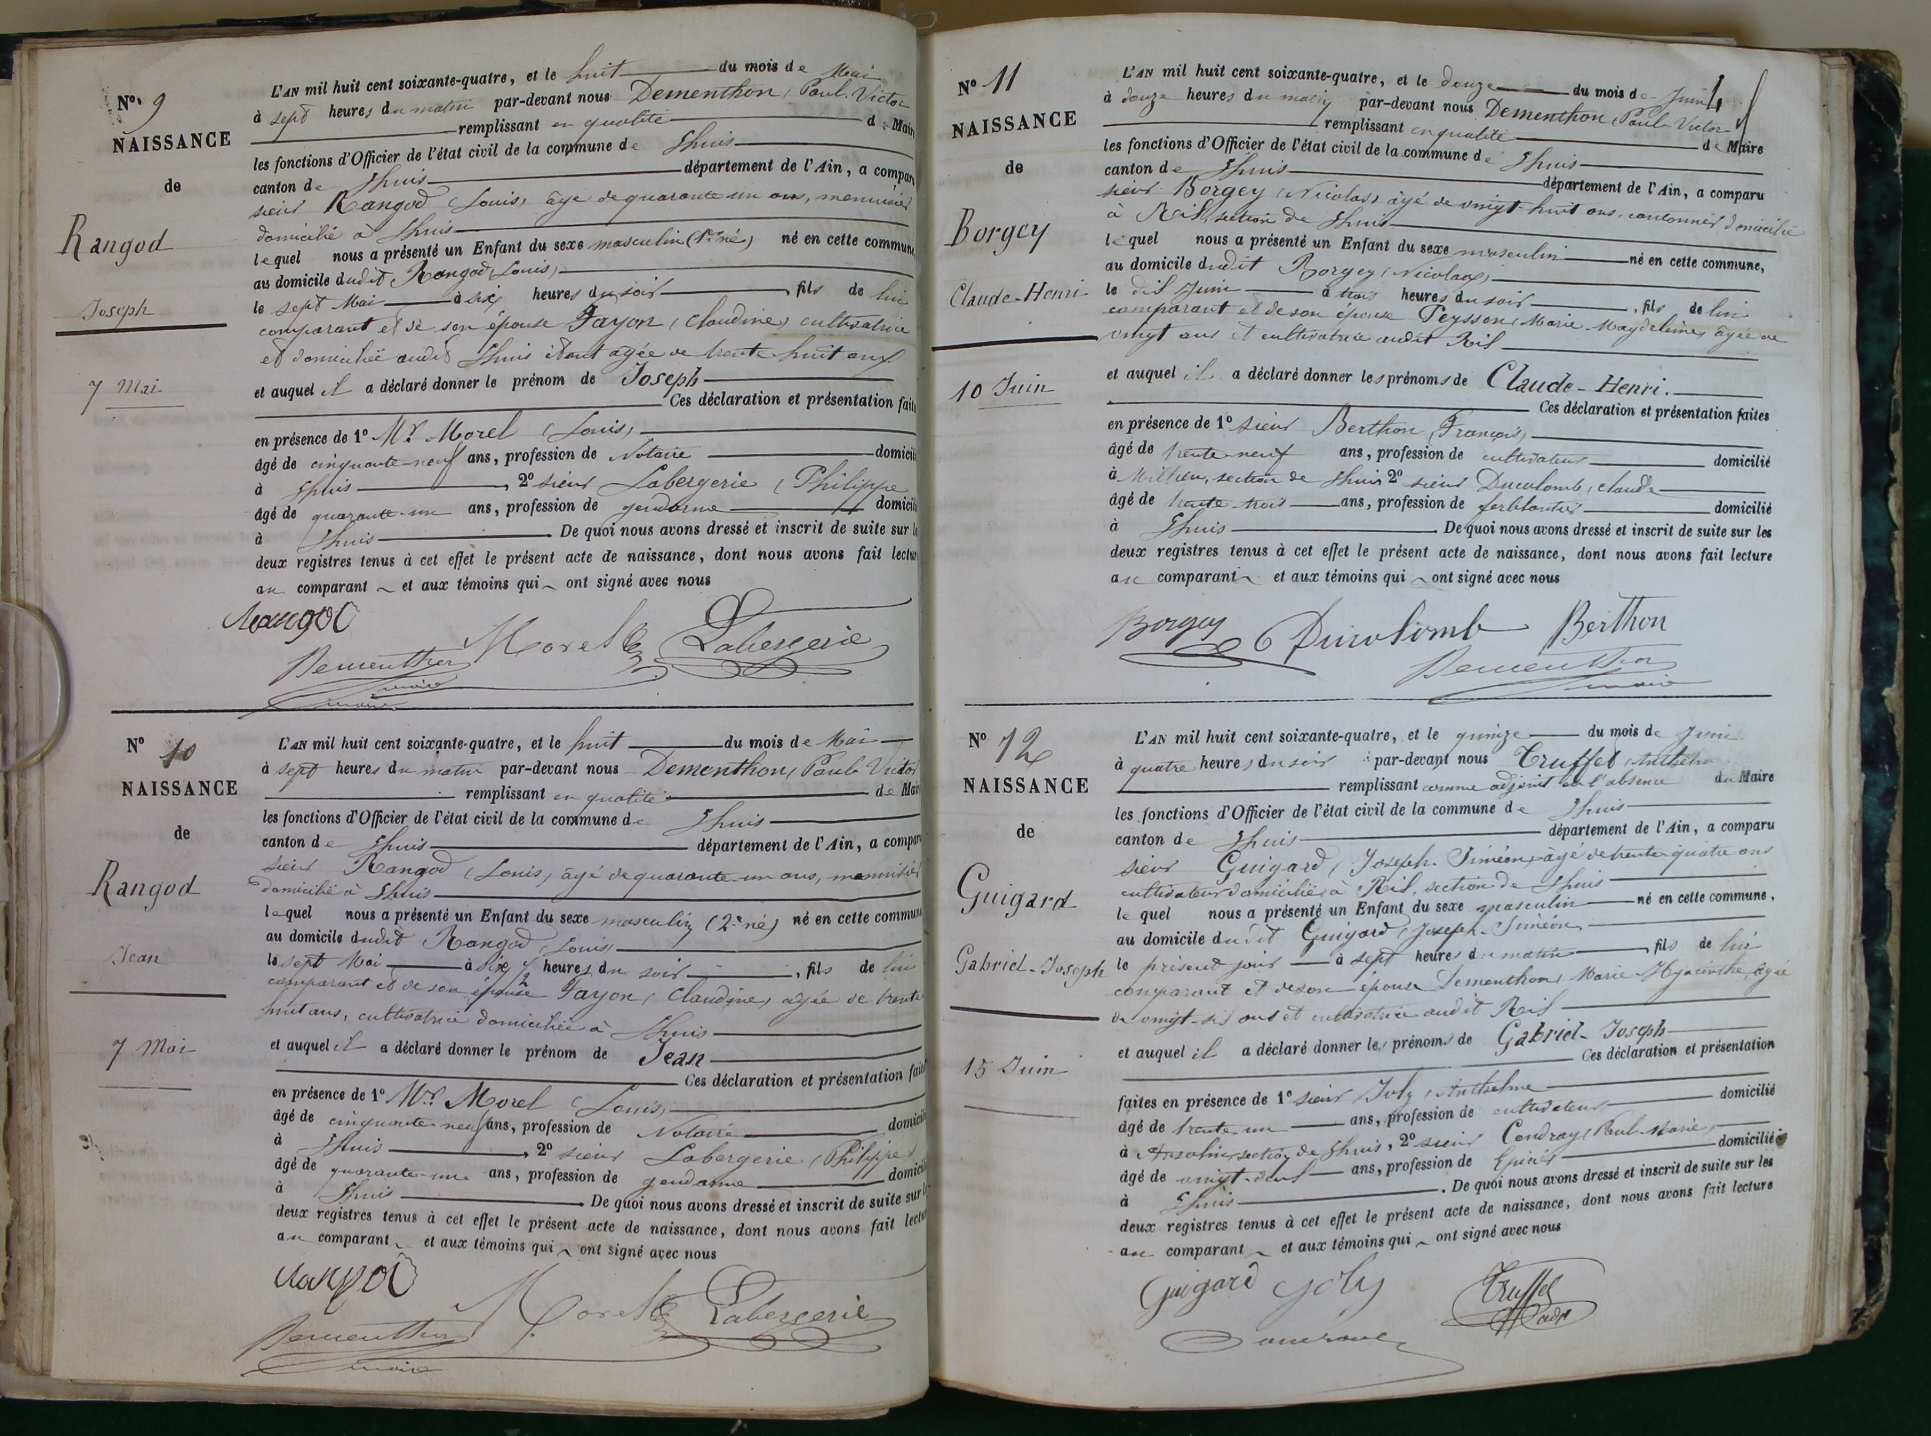 N° 9
NAISSANCE
de
Rangod
Joseph
7 Mai
L'AN mil huit cent soixante-quatre, et le huit du mois de Mai
à sept heures du matin par-devant nous Dementhon, Paul-Victor
remplissant en qualité de Maire
les fonctions d'Officier de l'état civil de la commune de Lhuis
canton de Lhuis département de l'Ain, a comparu
sieur Rangod (Louis) âgé de quarante un ans, menuisier
domicilié à Lhuis
lequel nous a présenté un Enfant du sexe masculin (1er né) né en cette commune
au domicile dudit Rangod (Louis)
le sept Mai à six heures du soir, fils de lui
comparant et de son épouse Tayon (Claudine) cultivatrice
et domiciliée audit Lhuis étant agée de trente huit ans
et auquel il a déclaré donner le prénom de Joseph
Ces déclaration et présentation faites
en présence de 1° Mr Morel (Louis)
âgé de cinquante-neuf ans, profession de Notaire domicilié
à Lhuis, 2° sieur Labergerie (Philippe
âgé de quarante-un ans, profession de gendarme domicilié
à Lhuis De quoi nous avons dressé et inscrit de suite sur les
deux registres tenus à cet effet le présent acte de naissance, dont nous avons fait lecture
au comparant et aux témoins qui ont signé avec nous
Rangod
Morel Labergerie
Dementhon
maire
N° 10
NAISSANCE
de
Rangod
Jean
7 Mai
L'AN mil huit cent soixante-quatre, et le huit du mois de Mai
à sept heures du matin par-devant nous Dementhon, Paul-Victor
remplissant en qualité de Maire
les fonctions d'Officier de l'état civil de la commune de Lhuis
canton de Lhuis département de l'Ain, a comparu
sieur Rangod (Louis) âgé de quarante-un ans, menuisier
domicilié à Lhuis
lequel nous a présenté un Enfant du sexe masculin (2e né) né en cette commune
au domicile dudit Rangod (Louis)
le sept Mai à six ½ heures du soir, fils de lui
comparant et de son épouse Tayon (Claudine) agée de trente
huit ans, cultivatrice domiciliée à Lhuis
et auquel il a déclaré donner le prénom de Jean
Ces déclaration et présentation faites
en présence de 1° Mr Morel (Louis)
âgé de cinquante neuf ans, profession de Notaire domicilié
à Lhuis, 2° sieur Labergerie (Philippe)
âgé de quarante-un ans, profession de gendarme domicilié
à Lhuis De quoi nous avons dressé et inscrit de suite sur les
deux registres tenus à cet effet le présent acte de naissance, dont nous avons fait lecture
au comparant et aux témoins qui ont signé avec nous
Rangod
Morel Labergerie
Dementhon
maire
N° 11
NAISSANCE
de
Borgey
Claude-Henri
10 Juin
L'AN mil huit cent soixante-quatre, et le douze du mois de Juin
à douze heures du matin par-devant nous Dementhon, Paul-Victor
remplissant en qualité de Maire
les fonctions d'Officier de l'état civil de la commune de Lhuis
canton de Lhuis département de l'Ain, a comparu
sieur Borgey (Nicolas) âgé de vingt-huit ans, cantonnier domicilié
à Rix, section de Lhuis
lequel nous a présenté un Enfant du sexe masculin né en cette commune,
au domicile dudit Borgey (Nicolas)
le dix Juin à trois heures du soir, fils de lui
comparant et de son épouse Peysson, Marie-Magdeleine, agée de
vingt ans et cultivatrice audit Rix
et auquel il a déclaré donner les prénoms de Claude-Henri.
Ces déclaration et présentation faites
en présence de 1° sieur Berthon (François)
âgé de trente-neuf ans, profession de cultivateur domicilié
à Millieu, section de Lhuis 2° sieur Ducolomb, Claude
âgé de trente-trois ans, profession de ferblantier domicilié
à Lhuis De quoi nous avons dressé et inscrit de suite sur les
deux registres tenus à cet effet le présent acte de naissance, dont nous avons fait lecture
au comparant et aux témoins qui ont signé avec nous
Borgey Ducolomb Berthon
Dementhon
maire
N° 12
NAISSANCE
de
Guigard
Gabriel-Joseph
15 Juin
L'AN mil huit cent soixante-quatre, et le quinze du mois de Juin
à quatre heures du soir par-devant nous Truffet, Anthelme
remplissant comme adjoint en l'absence du Maire
les fonctions d'Officier de l'état civil de la commune de Lhuis
canton de Lhuis département de l'Ain, a comparu
sieur Guigard (Joseph-Siméon) âgé de trente-quatre ans
cultivateur domicilié à Rix, section de Lhuis
lequel nous a présenté un Enfant du sexe masculin né en cette commune,
au domicile dudit Guigard, Joseph-Siméon
le présent jour à sept heures du matin, fils de lui
comparant et de son épouse Dementhon, Marie-Hyacinthe, agée
de vingt-six ans et cultivatrice audit Rix
et auquel il a déclaré donner les prénoms de Gabriel-Joseph
Ces déclaration et présentation
faites en présence de 1° sieur Joly, Anthelme domicilié
âgé de trente-un ans, profession de cultivateur
à Ansolin section de Lhuis, 2° sieur Condray, Paul-Marie, domicilié
âgé de vingt-deux ans, profession de Epicier
à Lhuis. De quoi nous avons dressé et inscrit de suite sur les
deux registres tenus à cet effet le présent acte de naissance, dont nous avons fait lecture
au comparant et aux témoins qui ont signé avec nous
Guigard Joly Truffet
adjt